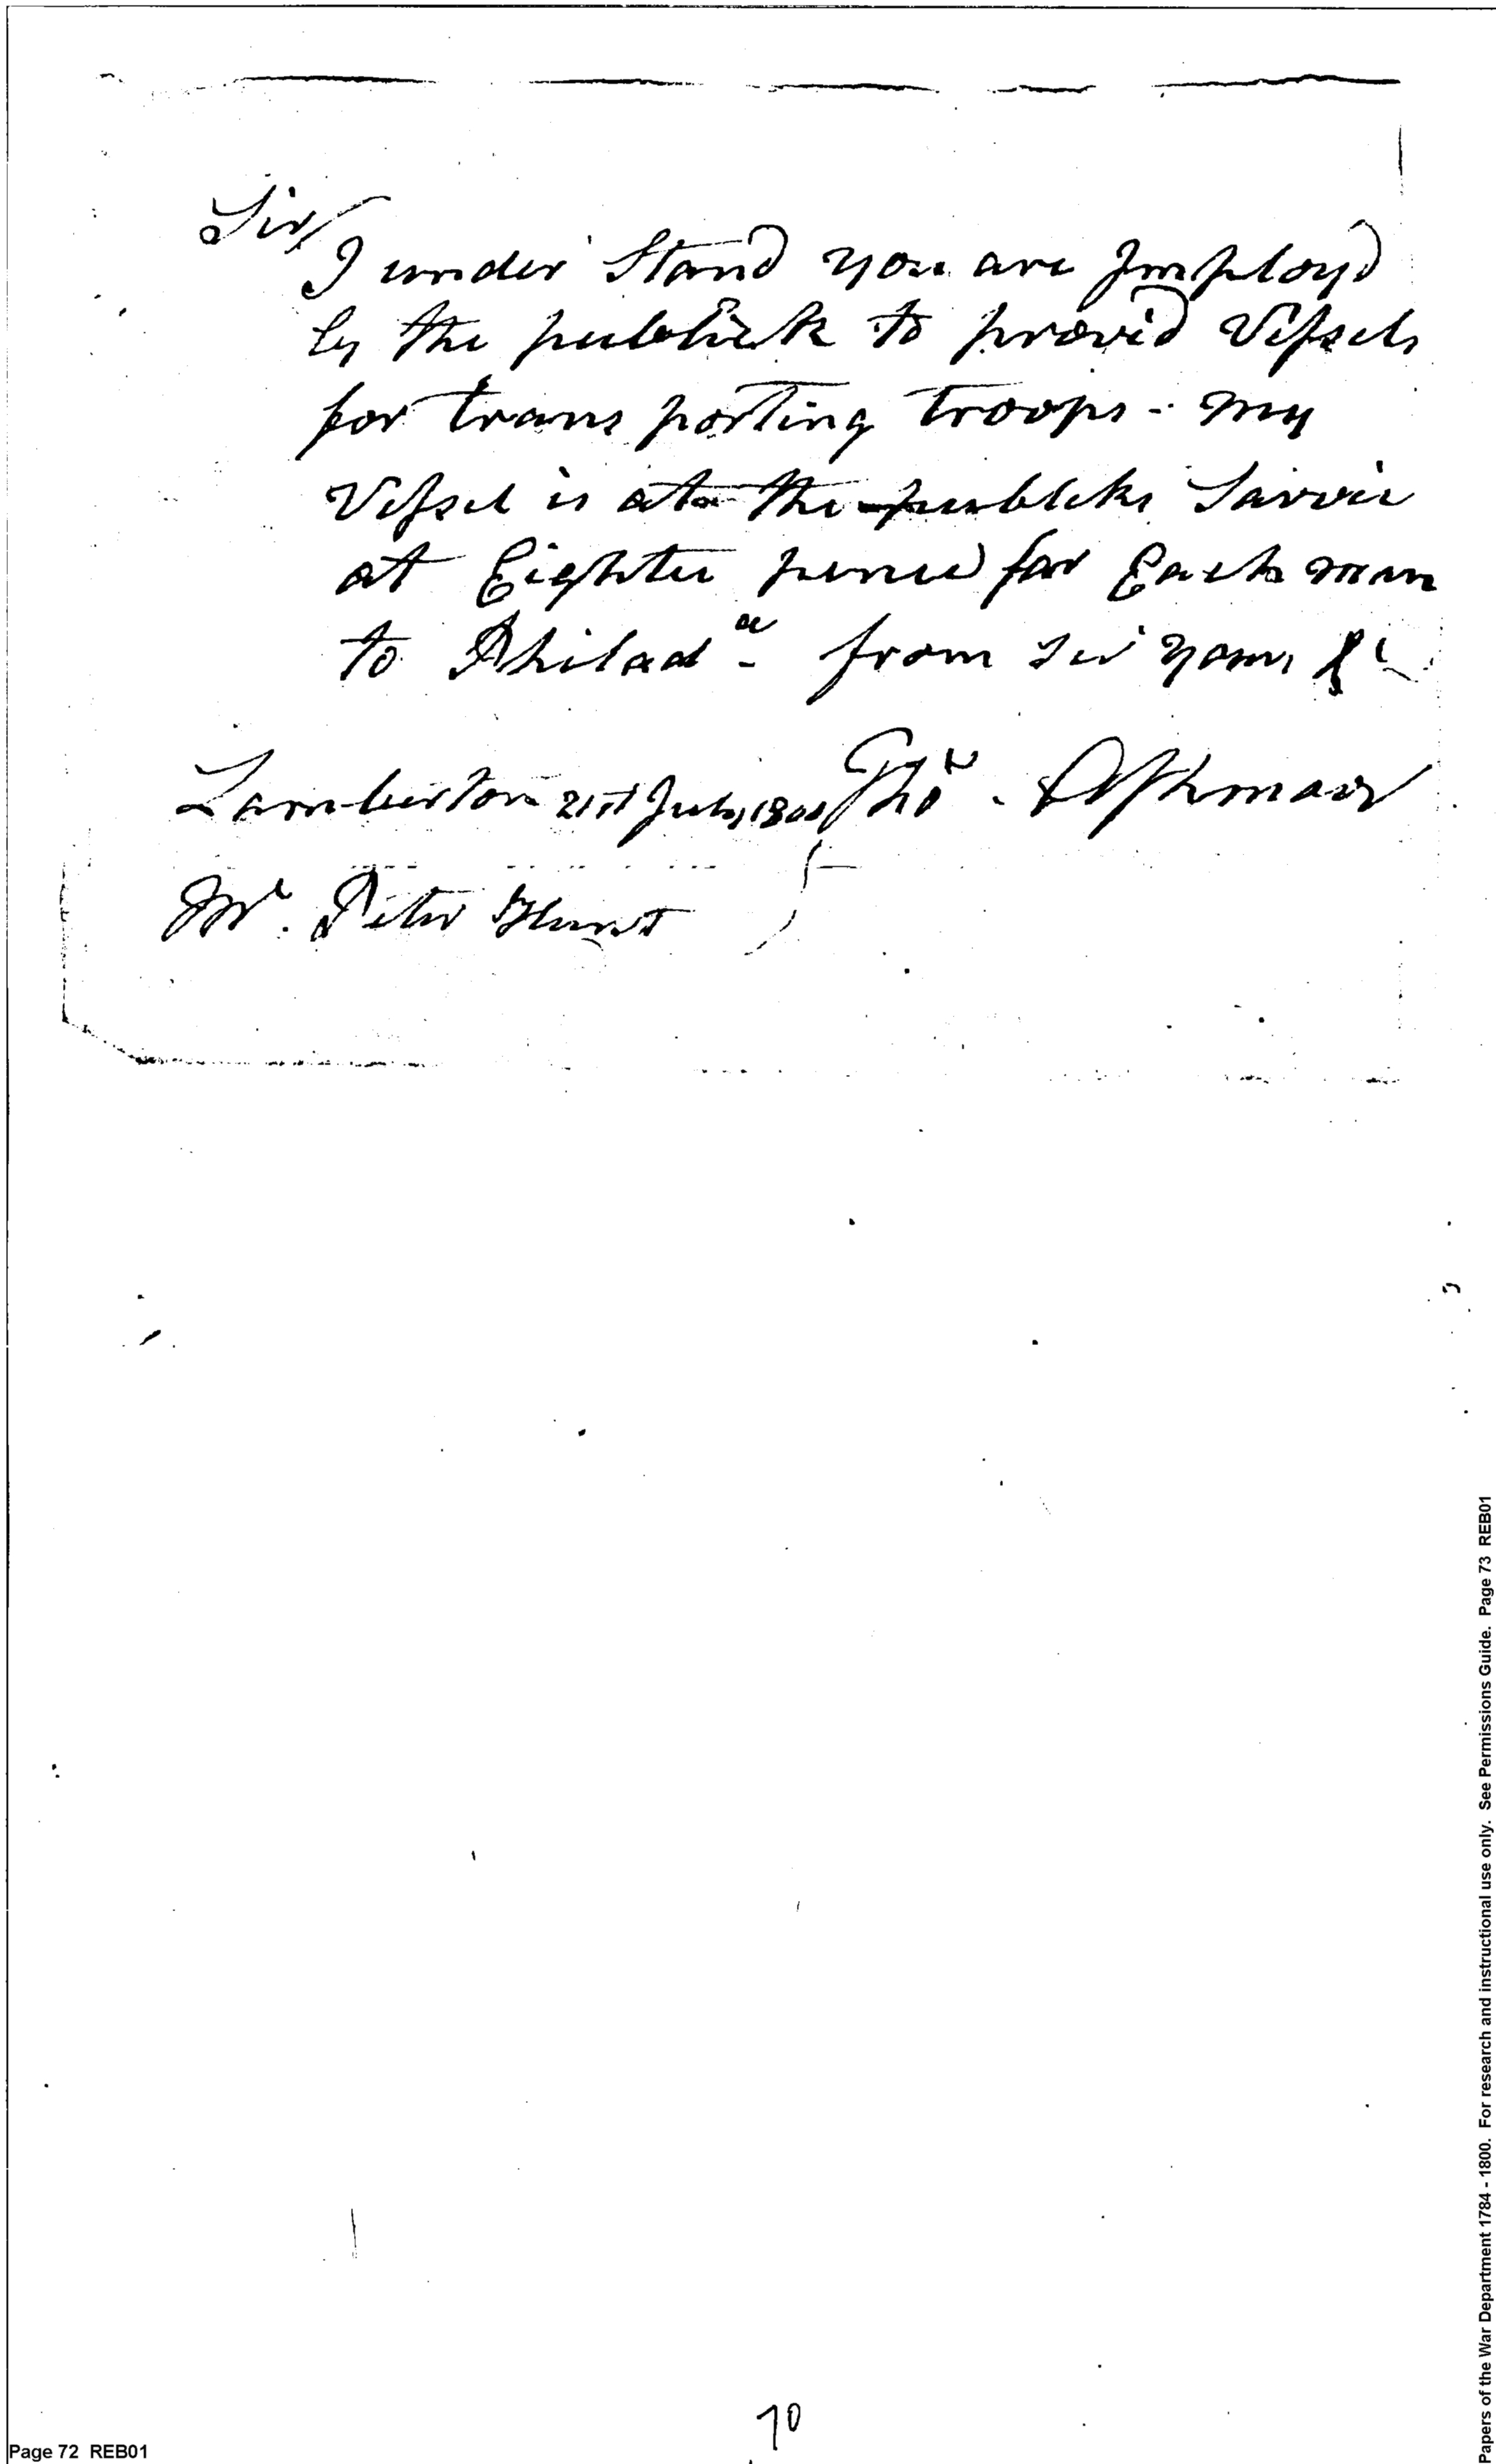 Sir/
I under Stand you are Imployd
by the publick to provid Vessels
for trans porting troops - my
Vessel is at the publeks Sarvie
at Eighte pence for Each man
to Philad<sup>a</sup> - from Sir yours &c
Lamberton 21st July 1800 Tho<sup>s</sup>. Ashmore
Mr. Peter Hunt
70
Page 72 REB01
Papers of the War Department 1784 - 1800. For research and instructional use only. See Permissions Guide. Page 73 REB01